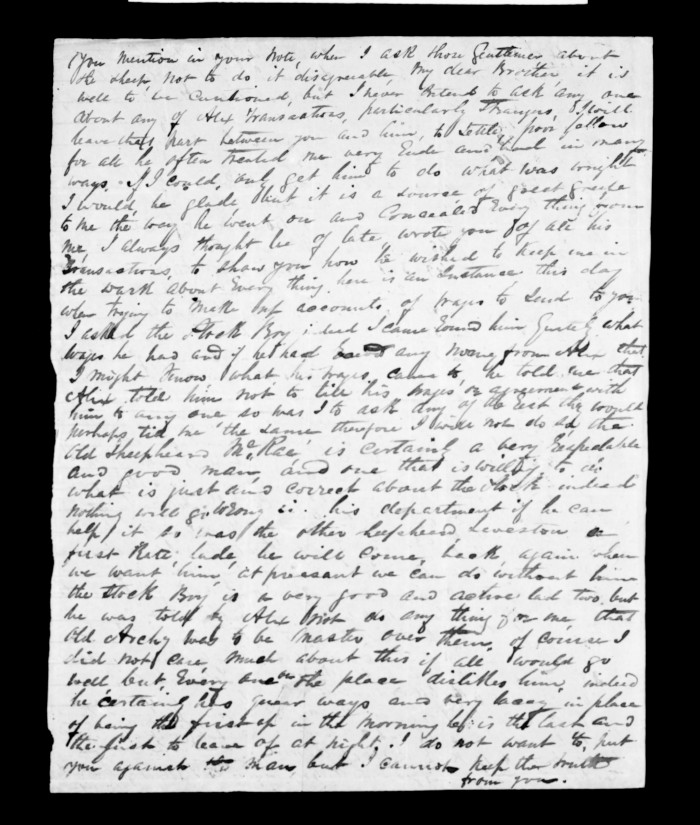 (You mention in your note, when I ask those Gentlemen about
the sheep, not to do it disagreeable, my dear Brother, it is
well to be Cautioned, but I never intend to ask any one
about any of Alix transactions, particularly I will
leave that part between you and him, to settle, poor fellow
for all he often treated me very Rude and in many
ways. If I could only get him to do what was wright
I would be glade but it is a source of great greife
to me the way he went on and Concealed Every thing from
me, I always thought he of late wrote you of all his
transactions, to show you how he wished to keep me in
the dark about Every thing here is an instance this day
when trying to make up accounts of wages to send to you
I asked the Stock Boy indeed I came round him quitely what
wages he had and if he had any money from Alix that
I might know what his wages came to he told me that
Alix told him not to till his wages or agreement with
him to any one so was I to ask any of the rest they would
perhaps till me the same therefore I will not do so, the
Old Sheepheard McRae is certainly a very Respectable
and good man, and one that is willing to do
what is just and correct about the stock indeed
nothing will go wrong in his department if he can
help it so was the other Leveston a
first Rate, he will come back again when
we want him, at pressant we can do without him
the Stock Boy is a very good and active lad two, but
he was told by Alix not do any thing for me, that
Old Archy was to be master over them, of course I
did not care, much about this if all would go
well but Every one on the place dislikes him, indeed
he certainly has quear ways and very in place
of being the first up in the morning he is the last and
the first to leave of at night. I do not want to put
you against the man, but I cannot keep the truth
from you.